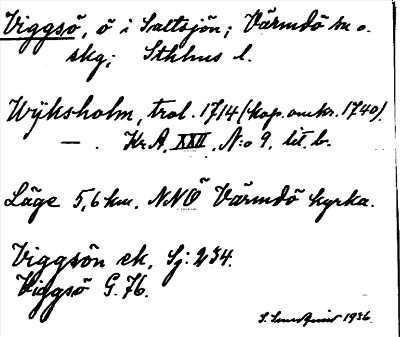 Viggsö, ö i Saltsjön; Värmdö sn o.
skg; Sthlms l.
Wijksholm, trol. 1714 (kop. omkr. 1740).
— . Kr.A. XXII. N:o 9, lit. b.
Läge 5,6 km. NNÖ Värmdö kyrka.
Viggsön ek. Sj: 234.
Viggsö G. 76.
1936.